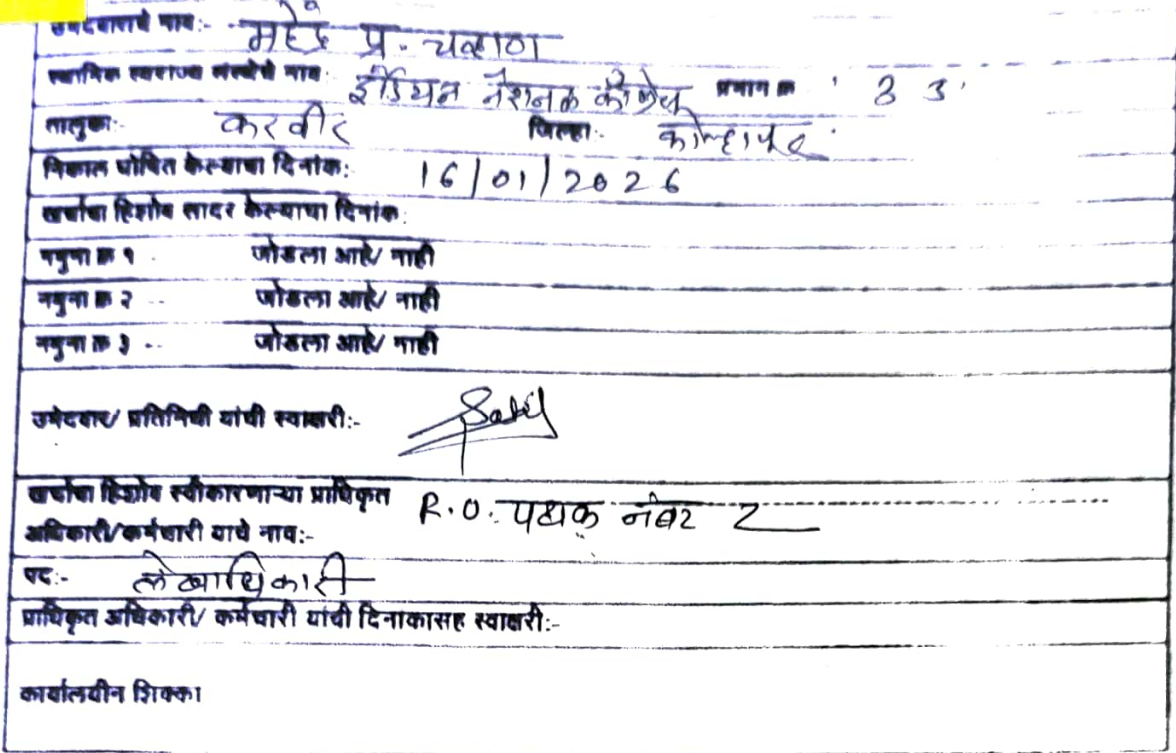 उमेदवाराचे नाव:- महेंद्र प्र. चव्हाण
स्थानिक स्वराज्य संस्थेचे नाव: इंडियन नॅशनल काँग्रेस प्रभाग क्र ' 3 3 '
तालुका:- करवीर जिल्हा:- कोल्हापूर.
निकाल घोषित केल्याचा दिनांक: 16/01/2026
खर्चाचा हिशोब सादर केल्याचा दिनांक:
नमुना क्र १ - जोडला आहे/ नाही
नमुना क्र २ -- जोडला आहे/ नाही
नमुना क्र ३ -- जोडला आहे/ नाही
उमेदवार/ प्रतिनिधी यांची स्वाक्षरी:-
खर्चाचा हिशोब स्वीकारणाऱ्या प्राधिकृत R.O. पथक नंबर 2
अधिकारी/कर्मचारी याचे नाव:-
पद:- लेखाधिकारी
प्राधिकृत अधिकारी/ कर्मचारी यांची दिनाकासह स्वाक्षरी:-
कार्यालयीन शिक्का